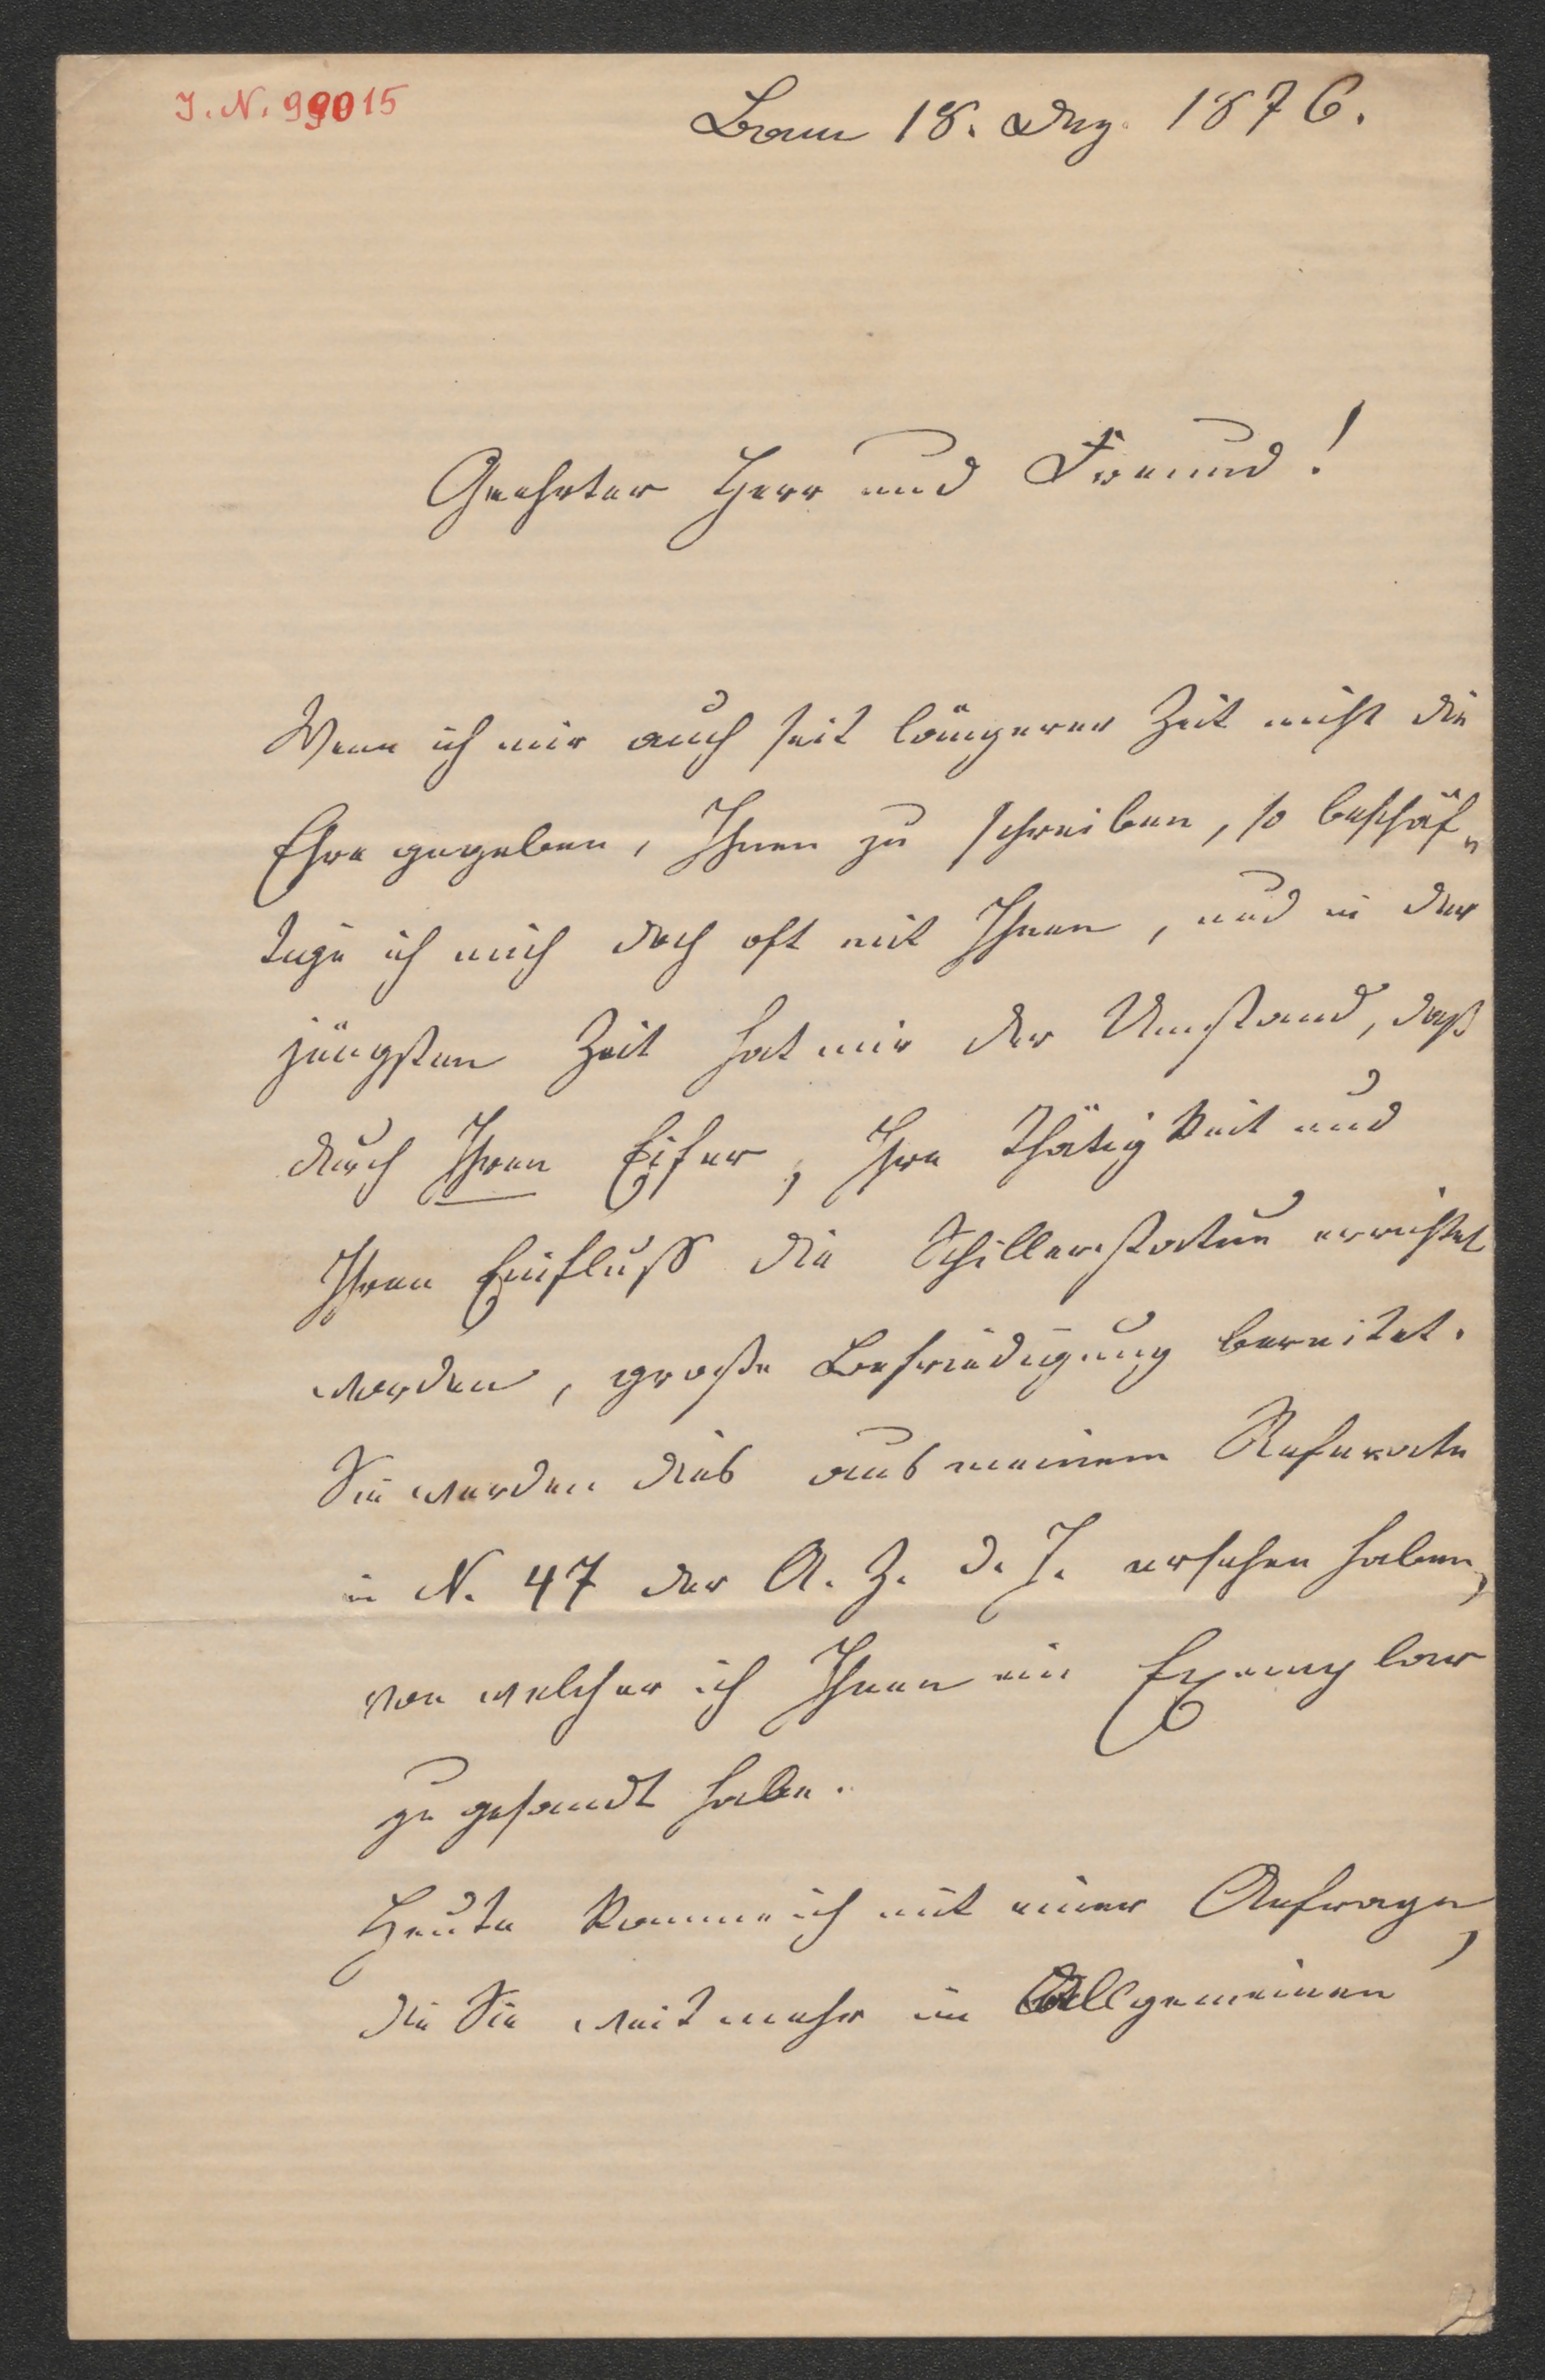 J. N. 99015
Bonn 18. Dez. 1876.
Geehrter Herr und Freund!
Wenn ich mir auch seit längerer Zeit nicht die
Ehre gegeben, Ihnen zu schreiben, so beschäf-
tige ich mich doch oft mit Ihnen, und in der
jüngsten Zeit hat mir der Umstand, daß
durch Ihren Eifer, Ihre Thätigkeit und
Ihren Einfluß die Schillerstatue errichtet
worden, große Befriedigung bereitet.
Sie werden dies aus meinem Referate
in N. 47 der A. Z. d. J. ersehen haben,
von welcher ich Ihnen ein Exemplar
zugesandt habe.
Heute komme ich mit einer Anfrage,
die Sie weit mehr im Allgemeinen